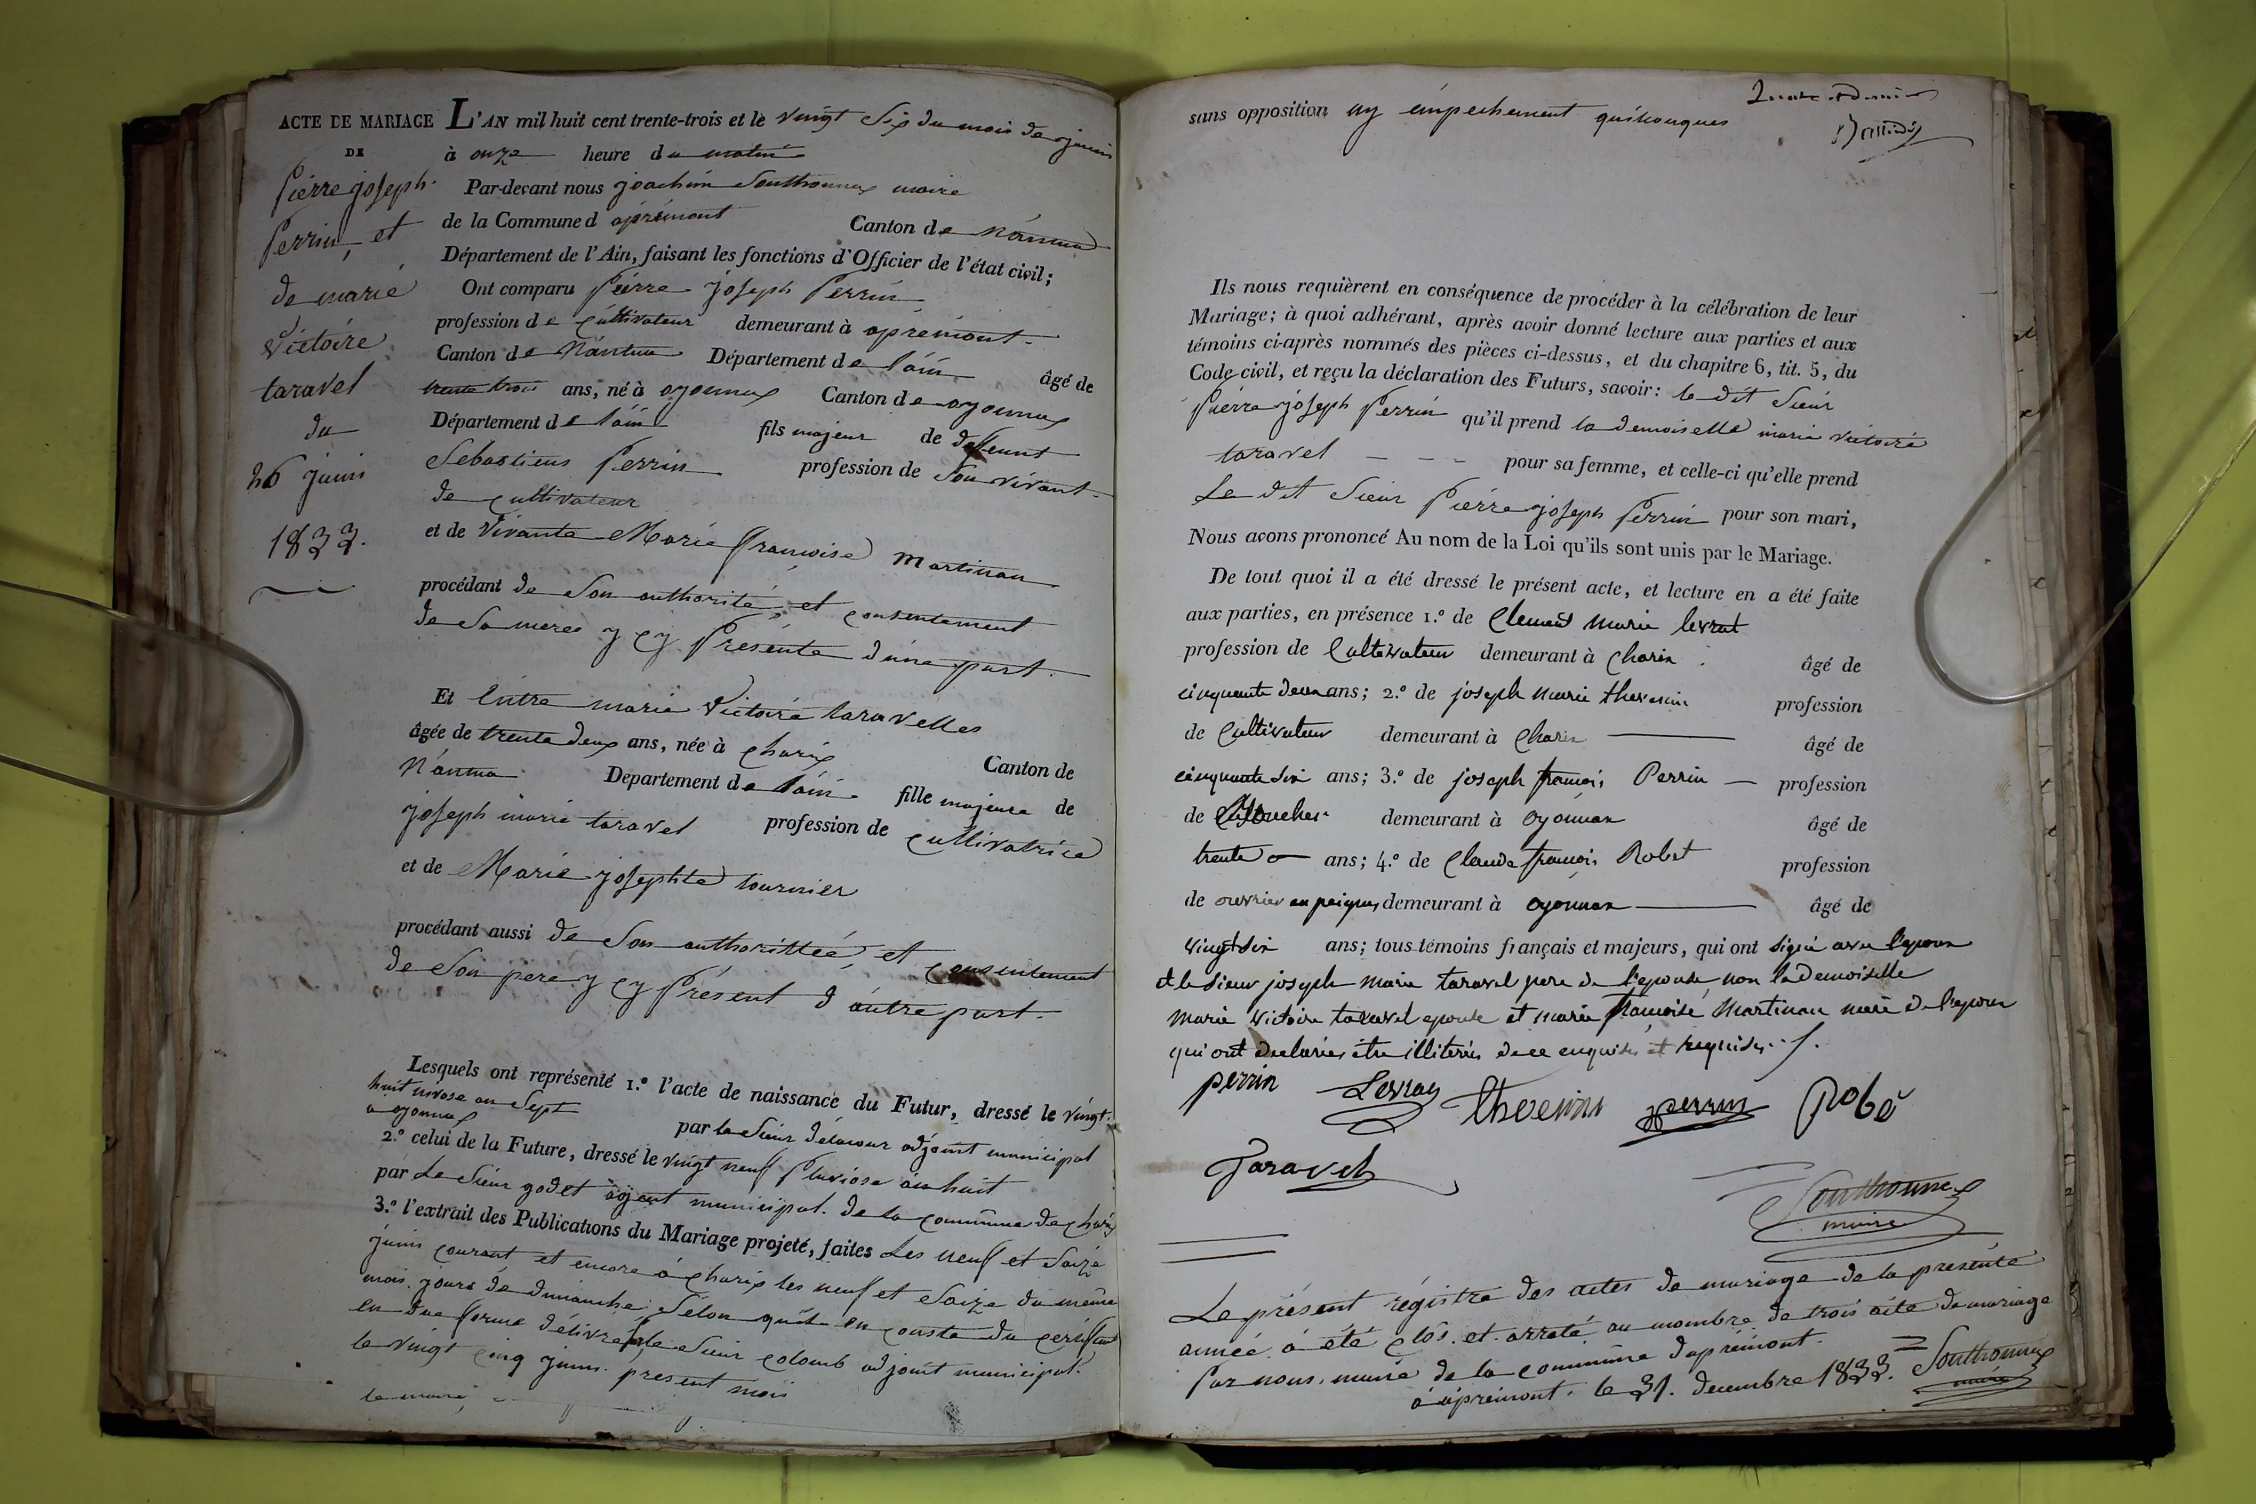 ACTE DE MARIAGE
DE
Piérre joseph
Perrin, et
de marie
Victoire
taravel
du
26 juin
1833.
L'AN mil huit cent trente-trois et le vingt Six du mois de juin
à onze heure du matin
Par-devant nous joachim Southonnax maire
de la Commune d apremont Canton de Nantua
Département de l'Ain, faisant les fonctions d'Officier de l'état civil;
Ont comparu Pierre joseph Perrin
profession de Cultivateur demeurant à apremont
Canton de Nantua Département de l'ain âgé de
trente trois ans, né à oyonnax Canton de oyonnax
Département de l'ain fils majeur de deffunt
Sebastiens Perrin profession de Son vivant
de cultivateur
et de Vivante Marie françoise Martinau
procédant de Son authorité, et consentement
de Sa meree y cy Présente d'une part.
Et Entre marie Victoire taravelles
âgée de trente deux ans, née à Charix Canton de
Nantua Departement de l'ain fille majeure de
joseph marie taravel profession de cultivatrice
et de Marie josephte tournier
procédant aussi de Son authorittée, et consentement
de Son pere y cy Présent d'autre part.
Lesquels ont représenté 1.º l'acte de naissance du Futur, dressé le vingt
huit nivose an Sept
a oyonnax par le Sieur délacour adjoint municipal
2.º celui de la Future, dressé le vingt neuf Pluviose an huit
par Le Sieur godet agent municipal. de la commune de charix
3.º l'extrait des Publications du Mariage projeté, faites Les neuf et Saize
juin courant et encore a charix les neuf et Saize du même
mois. jours de dimanche, Sélon quil en conste du certificat
en due forme délivré par le Sieur colomb adjoint municipal.
le vingt cinq juin. present mois
le maire,
sans opposition ny émpechement quelconques
Ils nous requièrent en conséquence de procéder à la célébration de leur
Mariage; à quoi adhérant, après avoir donné lecture aux parties et aux
témoins ci-après nommés des pièces ci-dessus, et du chapitre 6, tit. 5, du
Code civil, et reçu la déclaration des Futurs, savoir: le dit Sieur
Pierre joseph Perrin qu'il prend la demoiselle marie victoire
taravel - - - pour sa femme, et celle-ci qu'elle prend
Le dit Sieur Piérre joseph Perrin pour son mari,
Nous avons prononcé Au nom de la Loi qu'ils sont unis par le Mariage.
De tout quoi il a été dressé le présent acte, et lecture en a été faite
aux parties, en présence 1.º de Clement marie levrat
profession de Cultivateur demeurant à Charix âgé de
cinquante deux ans; 2.º de joseph marie thevenin profession
de Cultivateur demeurant à Charix âgé de
cinquante six ans; 3.º de joseph françois Perrin profession
de demeurant à Oyonnax âgé de
trente ans; 4.º de Claude françois Robet profession
de ouvrier en peignes demeurant à oyonnax âgé de
vingt six ans; tous témoins français et majeurs, qui ont signé avec l'epoux
et le sieur joseph marie taravel pere de l'epouse non la demoiselle
marie victoire taravel epouse et marie françoise Martinau mère de l'epoux
qui ont declarées être illiterés de ce enquises et requises.
perrin Levrat thevenin perrin Robé
Taravel
Southonnax
maire
Le présent régistre des actes de mariage de la présente
année a été clos et arreté au nombre de trois acte de mariage
Par nous, maire de la commune d'aprémont.
à apremont. le 31. decembre 1833. Southonnax
maire